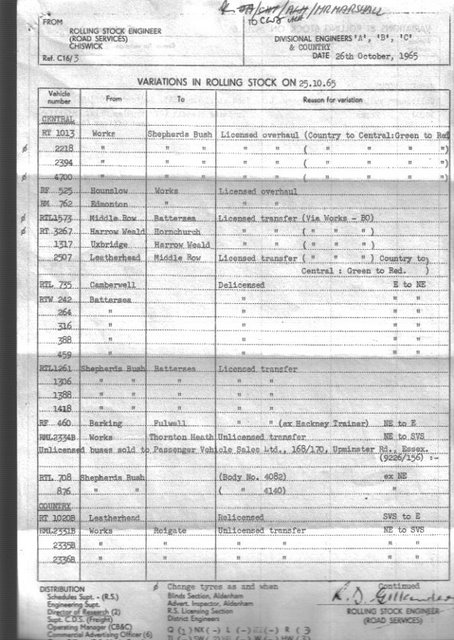 to CWS
FROM
ROLLING STOCK ENGINEER
(ROAD SERVICES)
CHISWICK
Ref. C16/3
DIVISIONAL ENGINEERS 'A', 'B', 'C'
& COUNTRY
DATE 26th October, 1965
VARIATIONS IN ROLLING STOCK ON 25.10.65
Vehicle number From To Reason for variation
CENTRAL
RT 1013 Works Shepherds Bush Licensed overhaul (Country to Central:Green to Red
ø 2218 " " " " ( " " " ")
2394 " " " " ( " " " ")
ø 4700 " " " " ( " " " ")
RF 525 Hounslow Works Licensed overhaul
RM 762 Edmonton " " "
ø RTL1573 Middle Row Battersea Licensed transfer (Via Works - BO)
ø RT 3267 Harrow Weald Hornchurch " " ( " " " )
1317 Uxbridge Harrow Weald " " ( " " " )
2507 Leatherhead Middle Row Licensed transfer ( " " " ) Country to
Central : Green to Red. )
RTL 735 Camberwell Delicensed E to NE
RTW 242 Battersea " " "
264 " " " "
316 " " " "
388 " " " "
459 " " " "
RTL1261 Shepherds Bush Battersea Licensed transfer
1306 " " " " "
1388 " " " " "
1418 " " " " "
RF 460 Barking Fulwell " " (ex Hackney Trainer) NE to E
RML2334B Works Thornton Heath Unlicensed transfer NE to SVS
Unlicensed buses sold to Passenger Vehicle Sales Ltd., 168/170, Upminster Rd., Essex.
(9226/156) :-
RTL 708 Shepherds Bush (Body No. 4082) ex NE
876 " " ( " 4140) "
COUNTRY
RT 1020B Leatherhead Relicensed SVS to E
RML2331B Works Reigate Unlicensed transfer NE to SVS
2335B " " " " " "
2336B " " " " " "
Continued
DISTRIBUTION
Schedules Supt. - (R.S.)
Engineering Supt.
Director of Research (2)
Supt. C.D.S. (Freight)
Operating Manager (CB&C)
Commercial Advertising Officer (6)
ø Change tyres as and when
Blinds Section, Aldenham
Advert. Inspector, Aldenham
R.S. Licensing Section
District Engineers
ROLLING STOCK ENGINEER
(ROAD SERVICES)